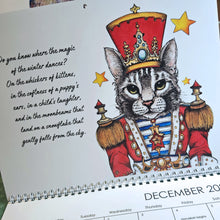 Do you know where the magic
of the winter dances?
On the whiskers of kittens,
in the softness of a puppy's
ears, in a child's laughter,
and in the moonbeams that
land on a snowflake that
gently falls from the sky.
DECEMBER 202
Tuesday Wednesday Thursday Friday